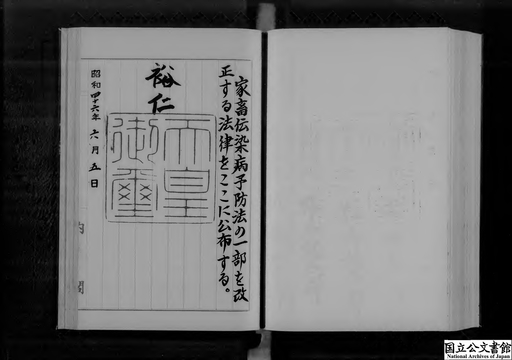 家畜伝染病予防法の一部を改
正する法律をここに公布する。
裕仁
天皇
御璽
昭和四十六年六月五日
内閣
国立公文書館
National Archives of Japan